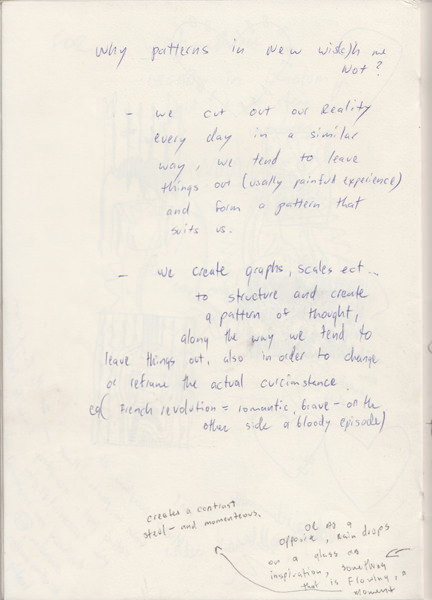 why patterns in new
me
not?
- we cut out our reality
every day in a similar
way, we tend to leave
things out (usally painful experience)
and form a pattern that
suits us.
- we create graphs, scales ect...
to structure and create
a pattern of thought,
along the way we tend to
leave things out, also in order to change
or reframe the actual curcimstence.
eg( French revolution = romantic, brave - on the
other side a bloody episode)
creates a contrast
steal - and momenteous.
or as a
opposite, rain drops
on a glass as
inspiration, something
that is flowing, a
moment